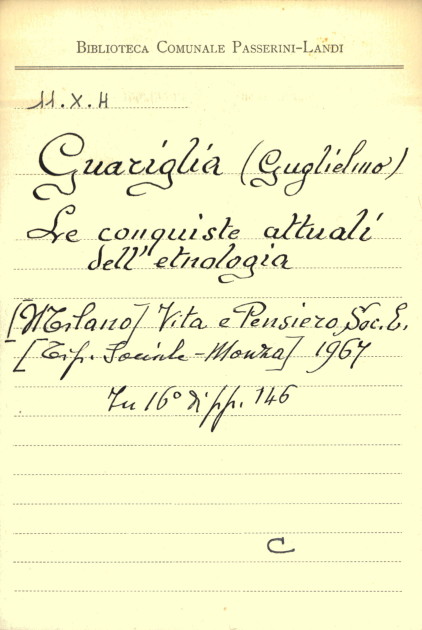 BIBLIOTECA COMUNALE PASSERINI-LANDI
11.X.H
Guariglia (Guglielmo)
Le conquiste attuali
dell'etnologia
[Milano] Vita e Pensiero, Soc. E.
[Tip. Sociale-Monza] 1967
In 16° di pp. 146
C